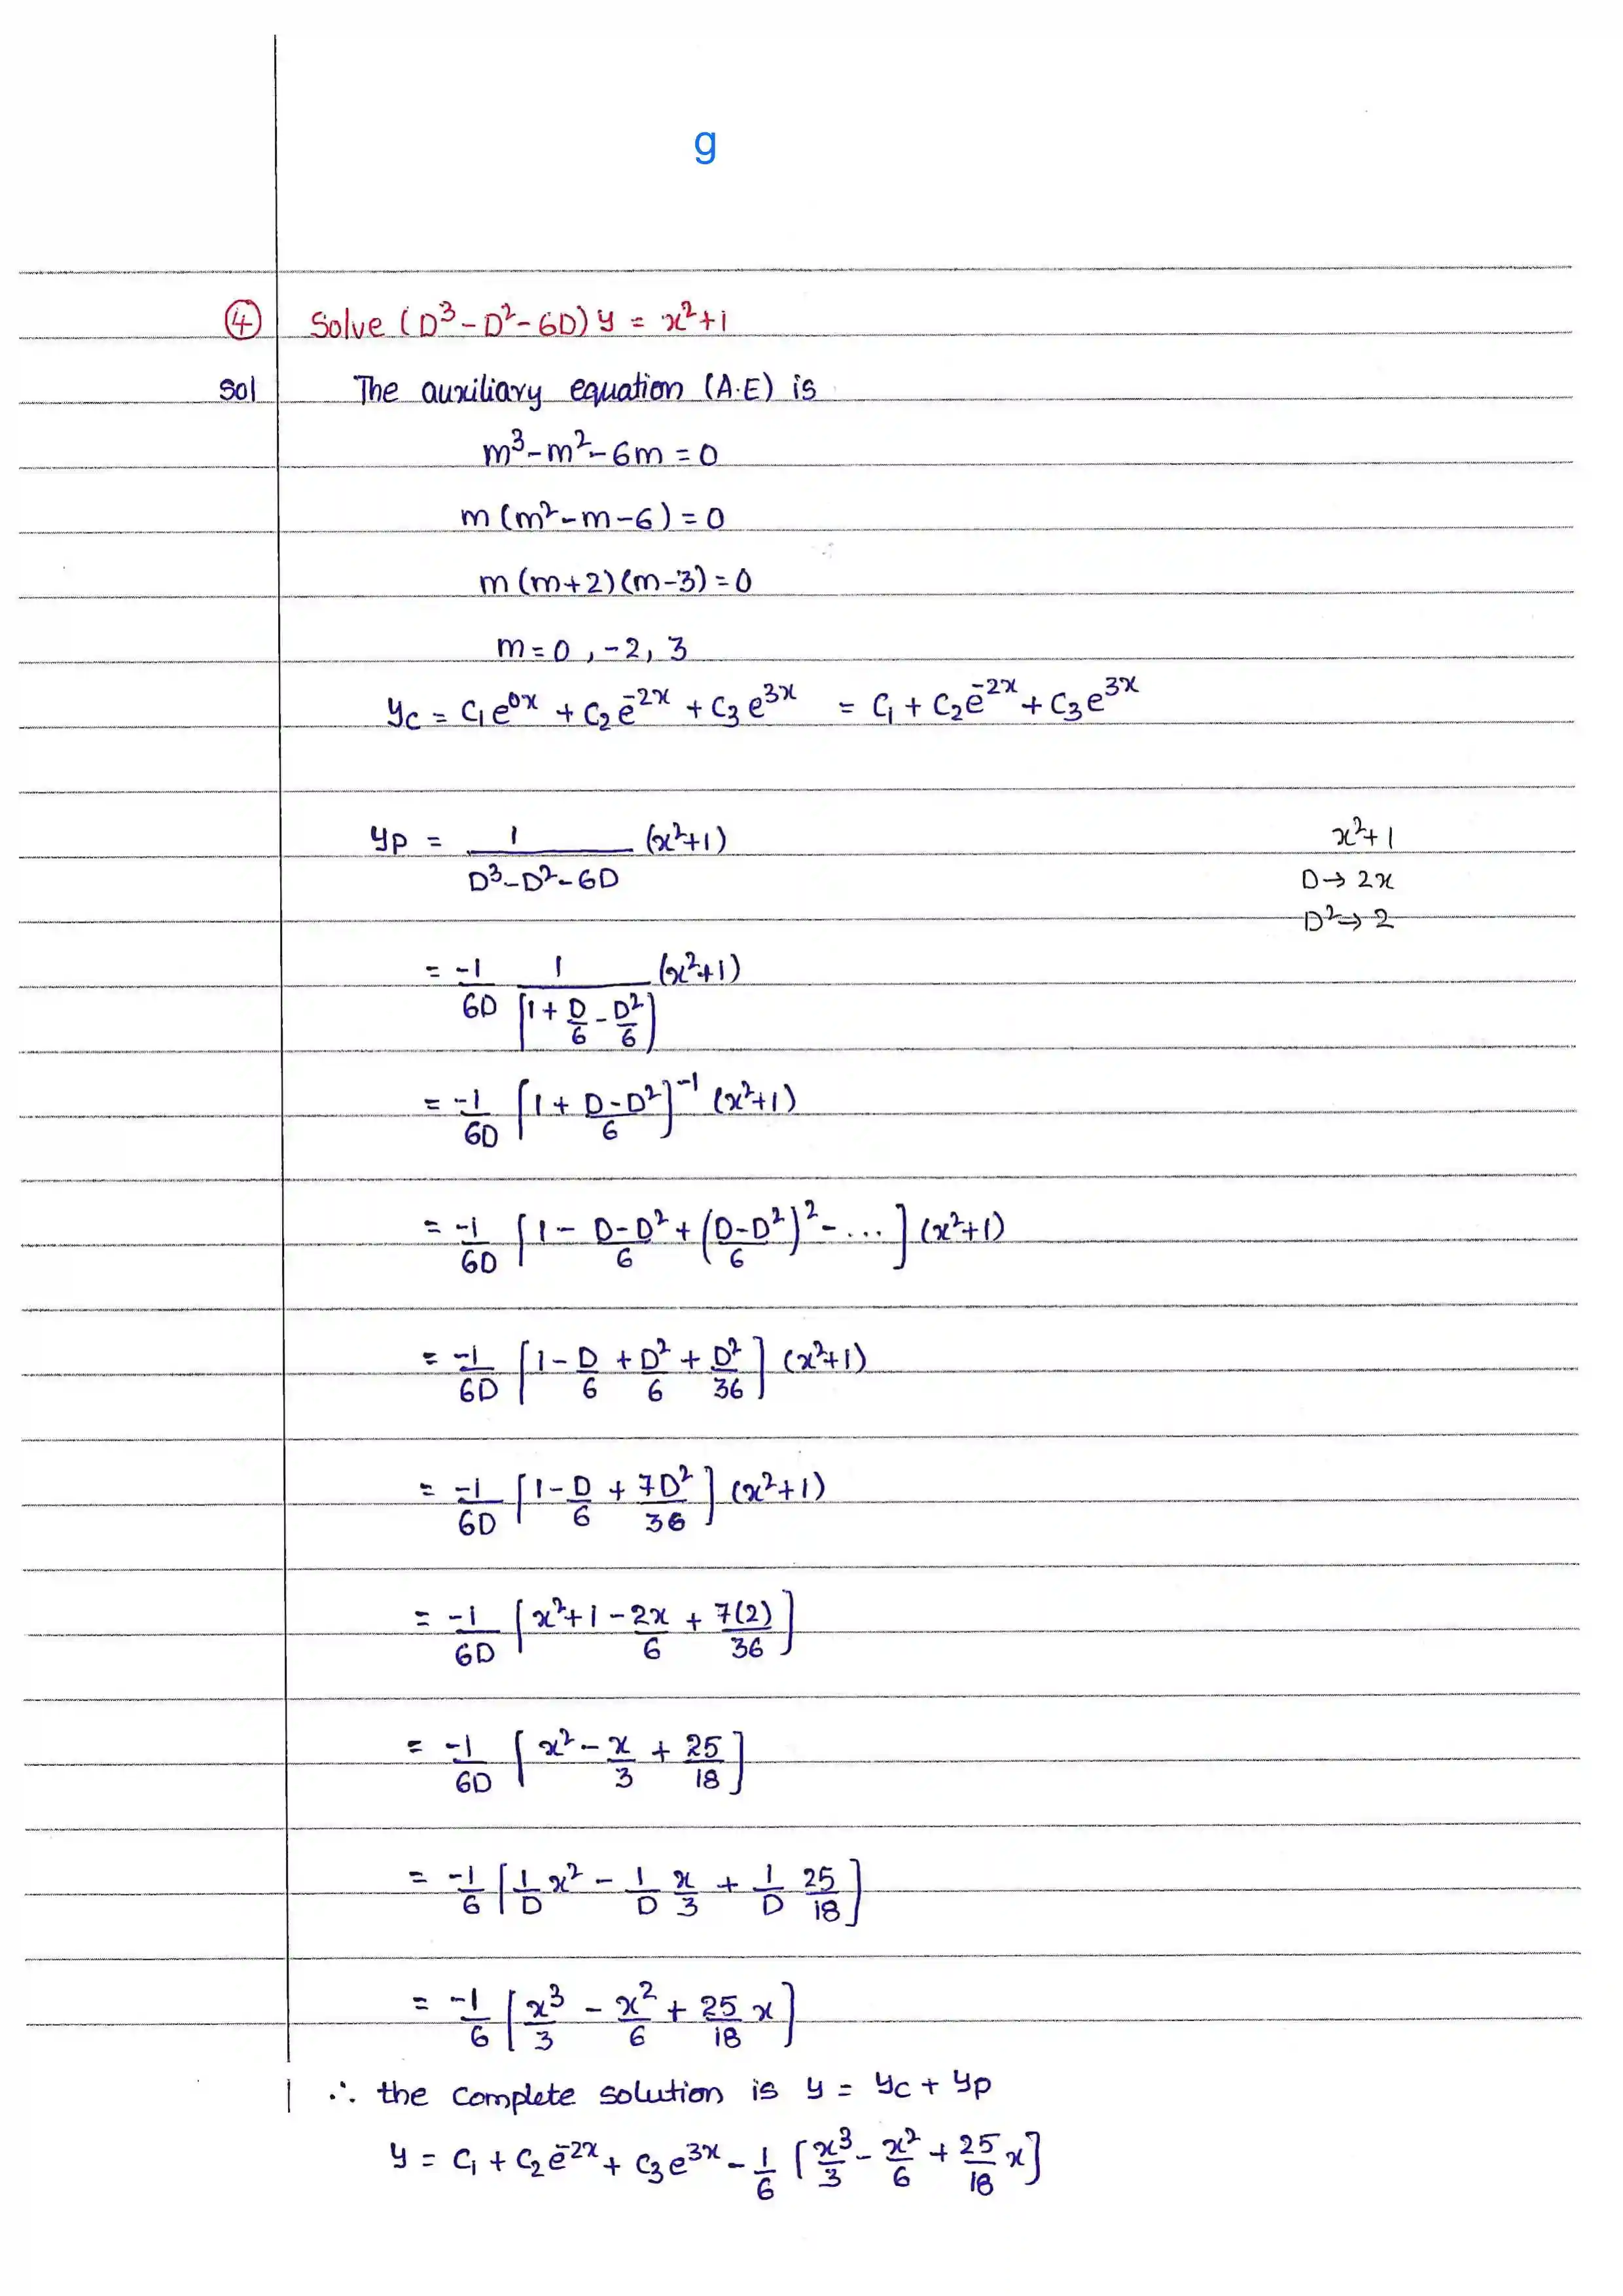 g
④ Solve (D³-D²-6D) y = x²+1
Sol The auxiliary equation (A.E) is
m³-m²-6m = 0
m(m²-m-6) = 0
m(m+2)(m-3) = 0
m = 0, -2, 3
yc = C₁e⁰ˣ + C₂e⁻²ˣ + C₃e³ˣ = C₁ + C₂e⁻²ˣ + C₃e³ˣ
yp = 1/(D³-D²-6D) (x²+1)
x²+1
D→ 2x
D²→ 2
= -1/6D 1/[1 + D/6 - D²/6] (x²+1)
= -1/6D [1 + (D-D²)/6]⁻¹ (x²+1)
= -1/6D [1 - (D-D²)/6 + ((D-D²)/6)² - ...] (x²+1)
= -1/6D [1 - D/6 + D²/6 + D²/36] (x²+1)
= -1/6D [1 - D/6 + 7D²/36] (x²+1)
= -1/6D [x²+1 - 2x/6 + 7(2)/36]
= -1/6D [x² - x/3 + 25/18]
= -1/6 [1/D x² - 1/D x/3 + 1/D 25/18]
= -1/6 [x³/3 - x²/6 + 25/18 x]
∴ the complete solution is y = yc + yp
y = C₁ + C₂e⁻²ˣ + C₃e³ˣ - 1/6 [x³/3 - x²/6 + 25/18 x]